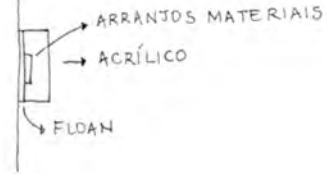 ARRANJOS MATERIAIS
ACRÍLICO
FLOAN